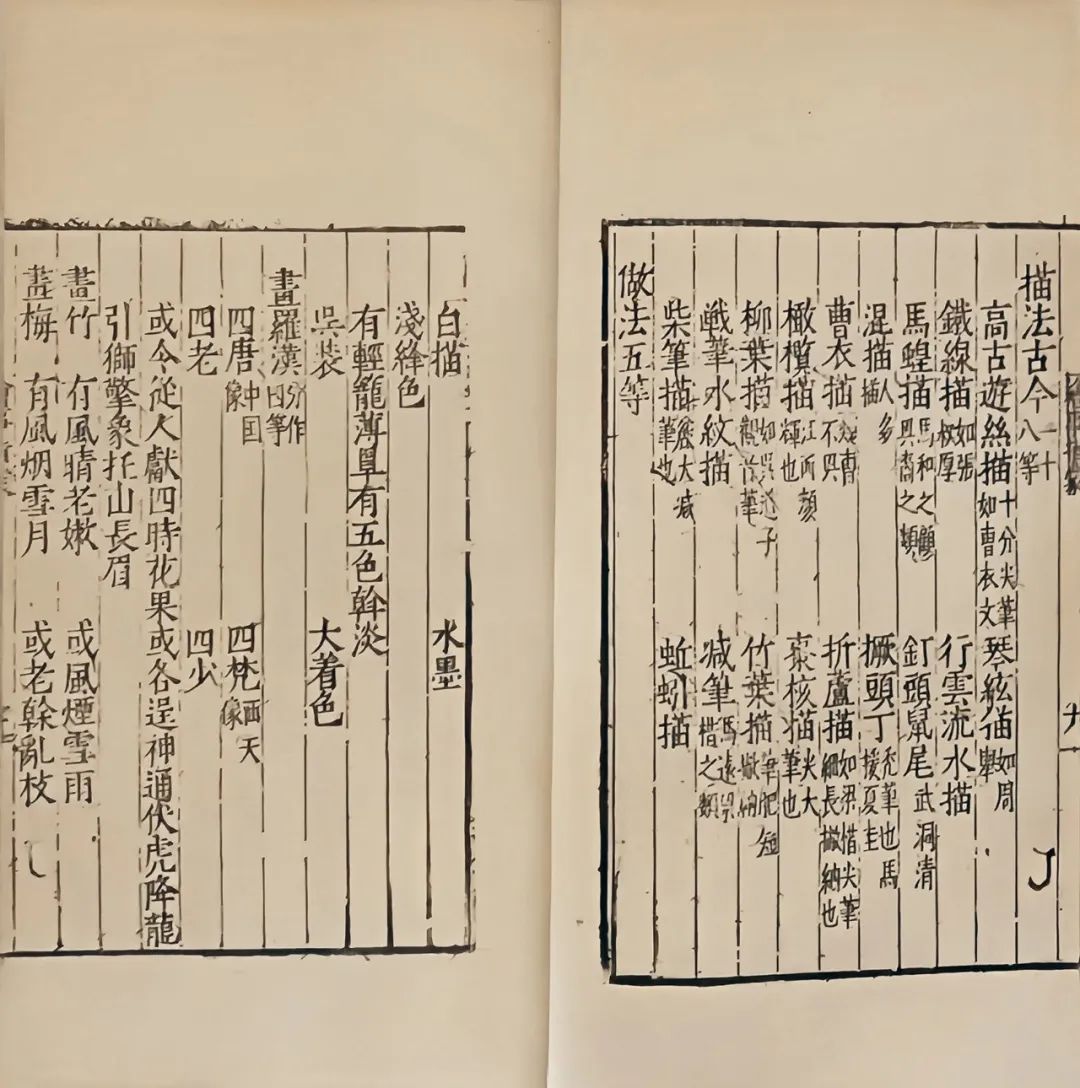 描法古今一十八等
高古遊絲描十分尖筆如曹衣文 琴絃描如周舉
鐵線描如張叔厚 行雲流水描
馬蝗描馬和之顧興裔之類 釘頭鼠尾武洞清
混描人多描 撅頭丁秃筆也馬援夏圭
曹衣描不興 折蘆描如梁楷尖筆細長撇納也
橄欖描江西顏輝也 棗核描尖大筆也
柳葉描如吳道子觀音筆 竹葉描筆肥短撇納
戰筆水紋描 減筆馬遠梁楷之類
柴筆描大減筆也 蚯蚓描
做法五等
白描 水墨
淺絳色
有輕籠薄罩有五色斡淡
吳裝 大着色
畫羅漢分作四等
四唐中国像 四梵西天像
四老 四少
或令從人獻四時花果或各逞神通伏虎降龍
引獅擎象托山長眉
畫竹 有風晴老嫩 或風煙雪雨
畫梅 有風烟雪月 或老榦亂枝